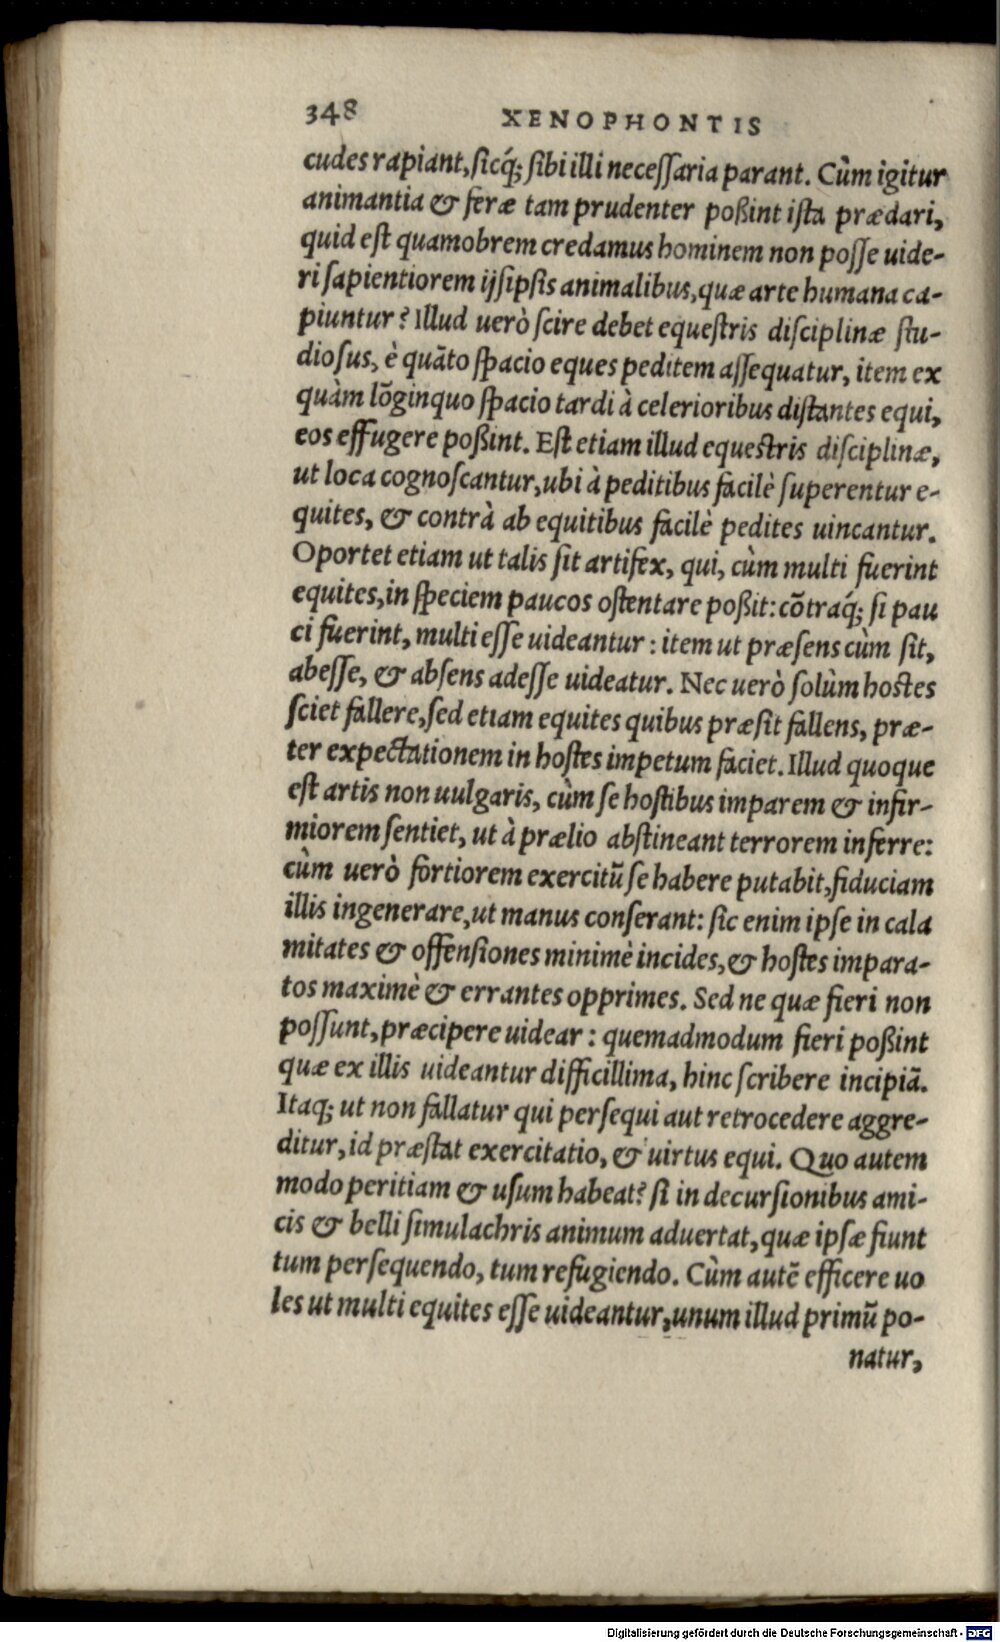 348 XENOPHONTIS
cudes rapiant, sicq́; sibi illi necessaria parant. Cùm igitur
animantia & feræ tam prudenter poßint ista prædari,
quid est quamobrem credamus hominem non posse uide-
ri sapientiorem ijsipsis animalibus, quæ arte humana ca-
piuntur? Illud uerò scire debet equestris disciplinæ stu-
diosus, è quãto spacio eques peditem assequatur, item ex
quàm lõginquo spacio tardi à celerioribus distantes equi,
eos effugere poßint. Est etiam illud equestris disciplinæ,
ut loca cognoscantur, ubi à peditibus facilè superentur e-
quites, & contrà ab equitibus facilè pedites uincantur.
Oportet etiam ut talis sit artifex, qui, cùm multi fuerint
equites, in speciem paucos ostentare poßit: cõtraq́; si pau
ci fuerint, multi esse uideantur: item ut præsens cùm sit,
abesse, & absens adesse uideatur. Nec uerò solùm hostes
sciet fallere, sed etiam equites quibus præsit fallens, præ-
ter expectationem in hostes impetum faciet. Illud quoque
est artis non uulgaris, cùm se hostibus imparem & infir-
miorem sentiet, ut à prælio abstineant terrorem inferre:
cùm uerò fortiorem exercitũ se habere putabit, fiduciam
illis ingenerare, ut manus conserant: sic enim ipse in cala
mitates & offensiones minimè incides, & hostes impara-
tos maximè & errantes opprimes. Sed ne quæ fieri non
possunt, præcipere uidear: quemadmodum fieri poßint
quæ ex illis uideantur difficillima, hinc scribere incipiã.
Itaq; ut non fallatur qui persequi aut retrocedere aggre-
ditur, id præstat exercitatio, & uirtus equi. Quo autem
modo peritiam & usum habeat? si in decursionibus ami-
cis & belli simulachris animum aduertat, quæ ipsæ fiunt
tum persequendo, tum refugiendo. Cùm autẽ efficere uo
les ut multi equites esse uideantur, unum illud primũ po-
natur,
Digitalisierung gefördert durch die Deutsche Forschungsgemeinschaft - DFG